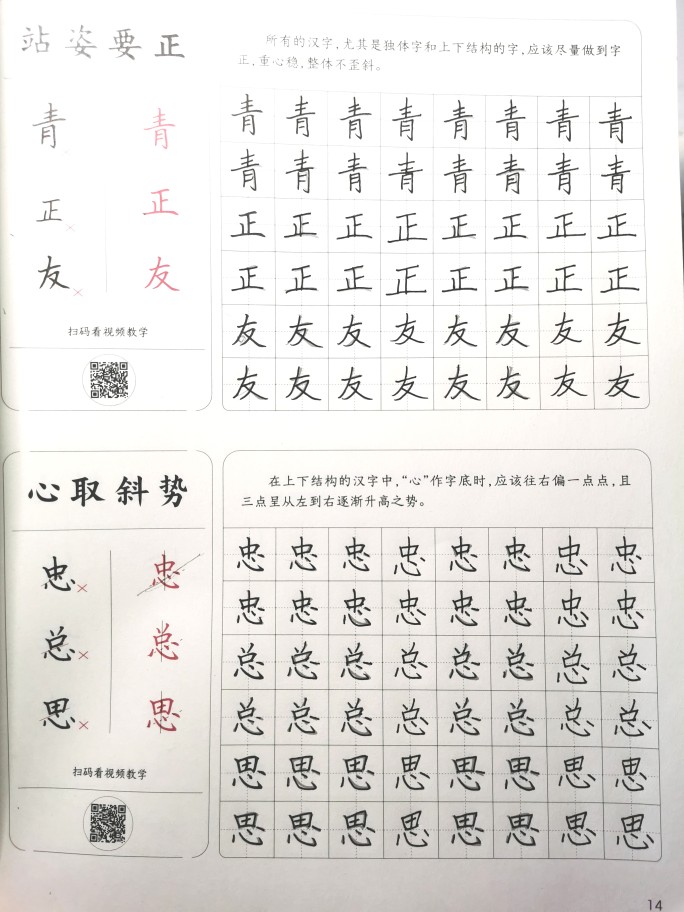 站姿要正
所有的汉字，尤其是独体字和上下结构的字，应该尽量做到字
正，重心稳，整体不歪斜。
青 青
正× 正
友× 友
扫码看视频教学
青 青 青 青 青 青 青 青
青 青 青 青 青 青 青 青
正 正 正 正 正 正 正 正
正 正 正 正 正 正 正 正
友 友 友 友 友 友 友 友
友 友 友 友 友 友 友 友
心取斜势
在上下结构的汉字中，“心”作字底时，应该往右偏一点点，且
三点呈从左到右逐渐升高之势。
忠× 忠
总× 总
思× 思
扫码看视频教学
忠 忠 忠 忠 忠 忠 忠 忠
忠 忠 忠 忠 忠 忠 忠 忠
总 总 总 总 总 总 总 总
总 总 总 总 总 总 总 总
思 思 思 思 思 思 思 思
思 思 思 思 思 思 思 思
14